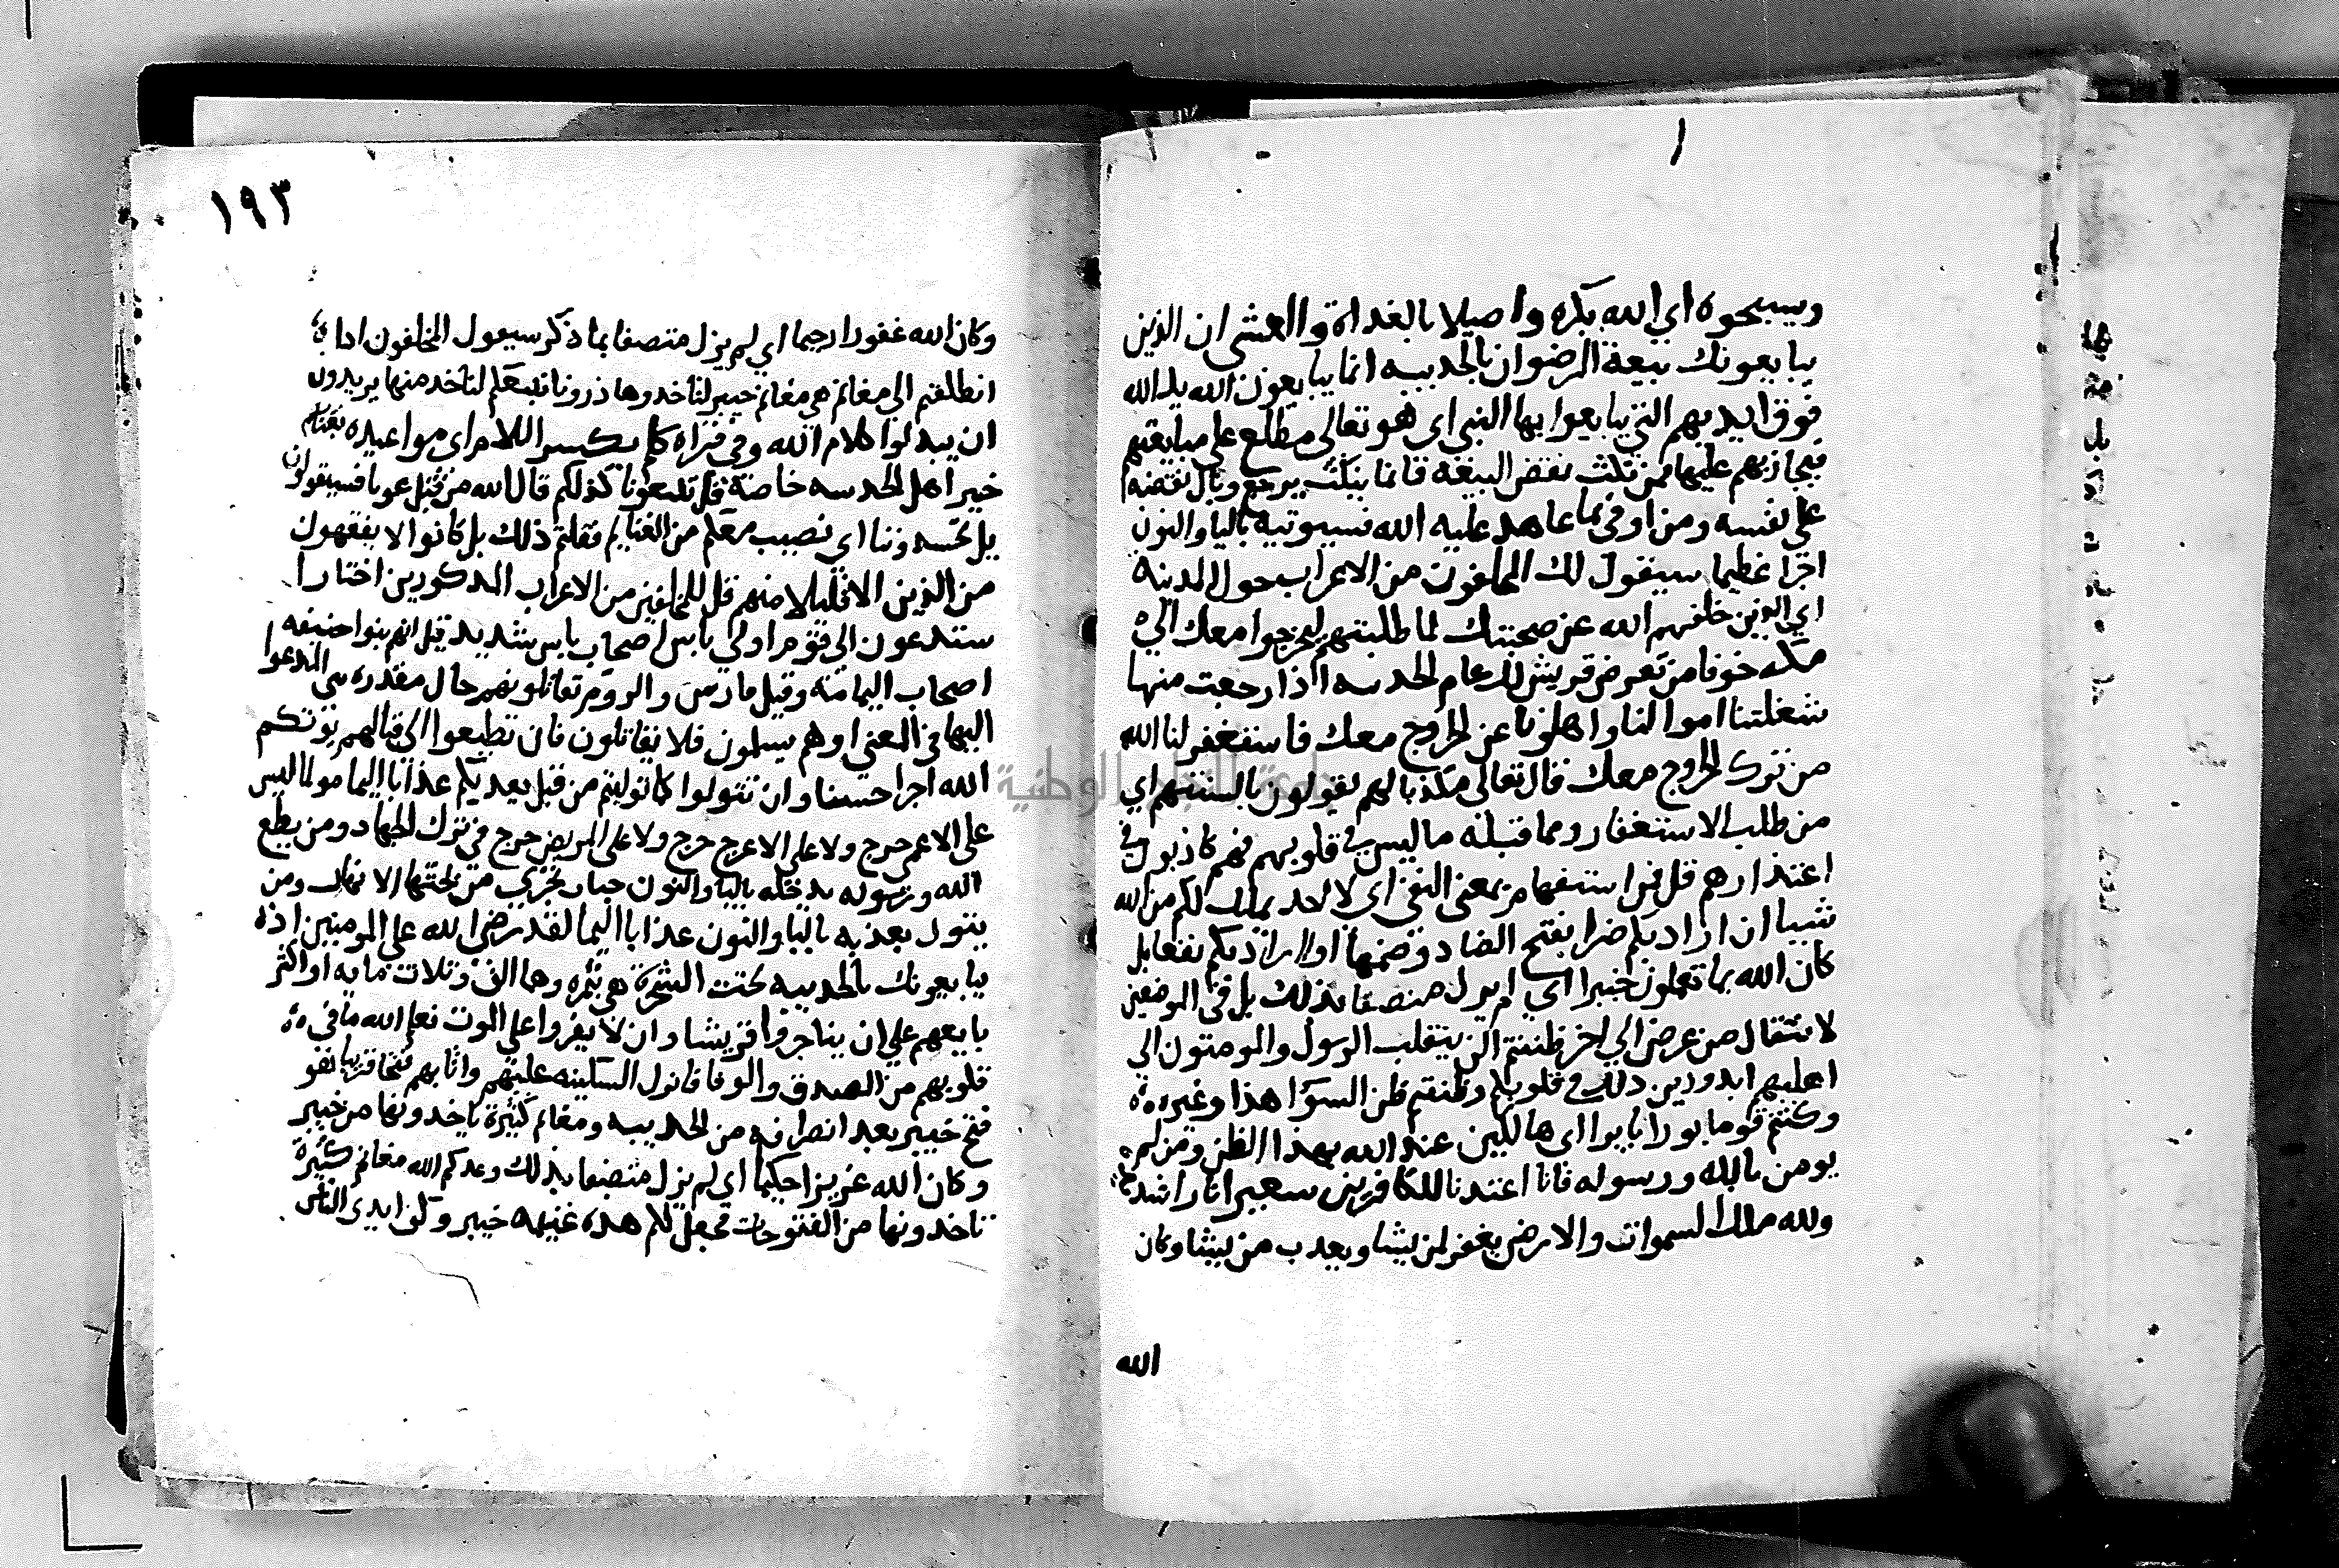 وسبحوه اي الله بكره واصيلا بالغداة والعشي ان الذين
يبايعونك بيعة الرضوان بالحديبيه انما يبايعون الله يد الله
فوق ايديهم التي بايعوا بها النبي اي هو تعالى مطلع على مبايعتهم
فيجازيهم عليها فمن نكث نقض البيعة فانما ينكث يرجع وبال نقضه
على نفسه ومن اوفى بما عاهد عليه الله فسيوتيه باليا والنون
اجرا عظيما سيقول لك المخلفون من الاعراب حول المدينه
اي الذين خلفهم الله عن صحبتك لما طلبتهم ليخرجوا معك الى
مكه خوفا من تعرض قريش لك عام الحديبيه اذا رجعت منها
شغلتنا اموالنا واهلونا عن الخروج معك فاستغفر لنا الله
من ترك الخروج معك قال تعالى مكذبا لهم يقولون بالسنتهم اي
من طلب الاستغفار ومما قبله ما ليس في قلوبهم فهم كاذبون في
اعتذارهم قل فمن استفهام بمعنى النفي اي لا احد يملك لكم من الله
شيا ان اراد بكم ضرا بفتح الضاد وضمها او اراد بكم نفعا بل
كان الله بما تعملون خبيرا اي لم يزل متصفا بذلك بل في الموضعين
لانتقال من غرض الي اخر ظننتم الن ينقلب الرسول والمومنون الى
اهليهم ابدا وزين ذلك في قلوبكم وظننتم ظن السوا هذا وغيره
وكنتم قوما بورا بايروا اي هالكين عند الله بهذا الظن ومن لم
يومن بالله ورسوله فانا اعتدنا للكافرين سعيرا نارا شديدة
ولله ملك السموات والارض يغفر لمن يشا ويعدب من يشا وكان
الله
١٩٣
وكان الله غفورا رحيما اي لم يزل متصفا بما ذكر سيقول المخلفون اذا
انطلقتم الي مغانم هي مغانم خيبر لتاخدوها ذرونا نتبعكم لناخد منها يريدون
ان يبدلوا كلام الله وفي قراة كلم بكسر اللام اي مواعيده بغنايم
خيبر اهل الحديبيه خاصة قل لن تتبعونا كذلكم قال الله من قبل عودنا فسيقولون
بل تحسدوننا اي نصيب معكم من الغنايم فقلتم ذلك بل كانوا لا يفقهون
من الذين الا قليلا منهم قل للمخلفين من الاعراب المدكورين اختبارا
ستدعون الي قوم اولي باس اصحاب باس شديد قيل هم بنوا حنيفه
اصحاب اليمامة وقيل فارس والروم تقاتلونهم حال مقدره هي المدعوا
اليها في المعني او هم يسلمون فلا يقاتلون فان تطيعوا الى قتالهم يوتكم
الله اجرا حسنا وان تتولوا كما توليتم من قبل يعذبكم عذابا اليما مولما ليس
على الاعمى حرج ولا على الاعرج حرج ولا على المريض حرج في ترك الجهاد ومن يطع
الله ورسوله يدخله باليا والنون جنات تجري من تحتها الانهار ومن
يتول يعذبه باليا والنون عذابا اليما لقد رضي الله على المومنين اذ
يبايعونك بالحديبيه تحت الشجرة هي سمره وهم الف وثلاث مايه او اكثر
بايعهم على ان يناجزوا قريشا وان لا يفروا على الموت فعلم الله ما في
قلوبهم من الصدق والوفا فانزل السكينه عليهم واثابهم فتحا قريبا هو
فتح خيبر بعد انصرافهم من الحديبيه ومغانم كثيرة ياخدونها من خيبر
وكان الله عزيزا حكيما اي لم يزل متصفا بذلك وعدكم الله مغانم كثيرة
تاخدونها من الفتوحات فعجل لكم هذه غنيمه خيبر وكف ايدي الناس
جامعة النجاح الوطنية